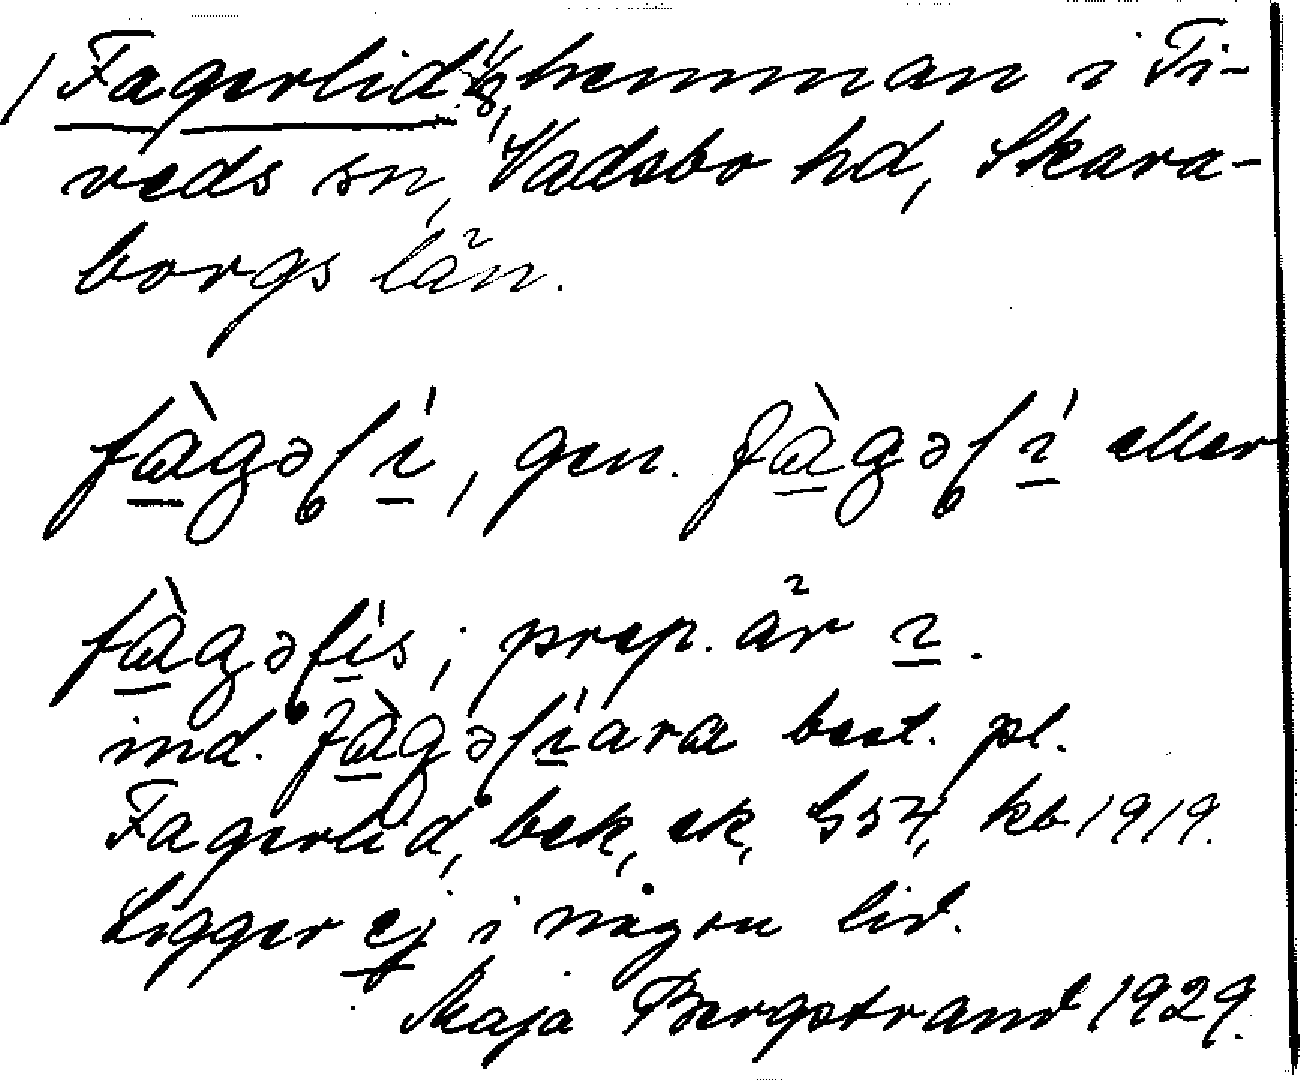 Fagerlid, 1/8 hemman i Ti-
veds sn, Vadsbo hd, Skara-
borgs län.
fàgəlí, gen. fàgəlí eller
fàgəlis; prep. är ı.
ind. fàgəlíara best. pl.
Fagerlid, bek, ek, G54, kb 1919.
Ligger ej i någon lid.
Maja Bergstrand 1929.